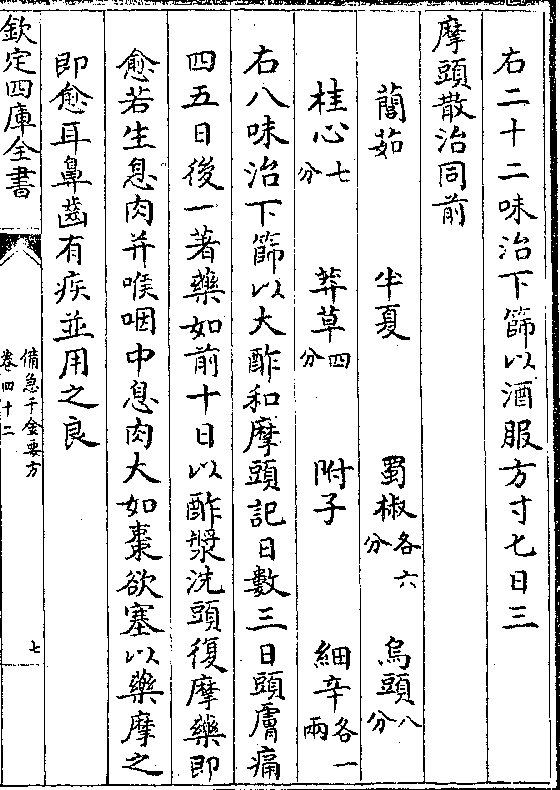 右二十二味治下篩以酒服方寸七日三
摩頭散治同前
䕡茹 半夏 蜀椒各六分 烏頭八分
桂心七分 莽草四分 附子 細辛各一兩
右八味治下篩以大酢和摩頭記日數三日頭膚痛
四五日後一著藥如前十日以酢漿洗頭復摩藥即
愈若生息肉并喉咽中息肉大如棗欲塞以藥摩之
即愈耳鼻齒有疾並用之良
欽定四庫全書
備急千金要方
卷四十二
七